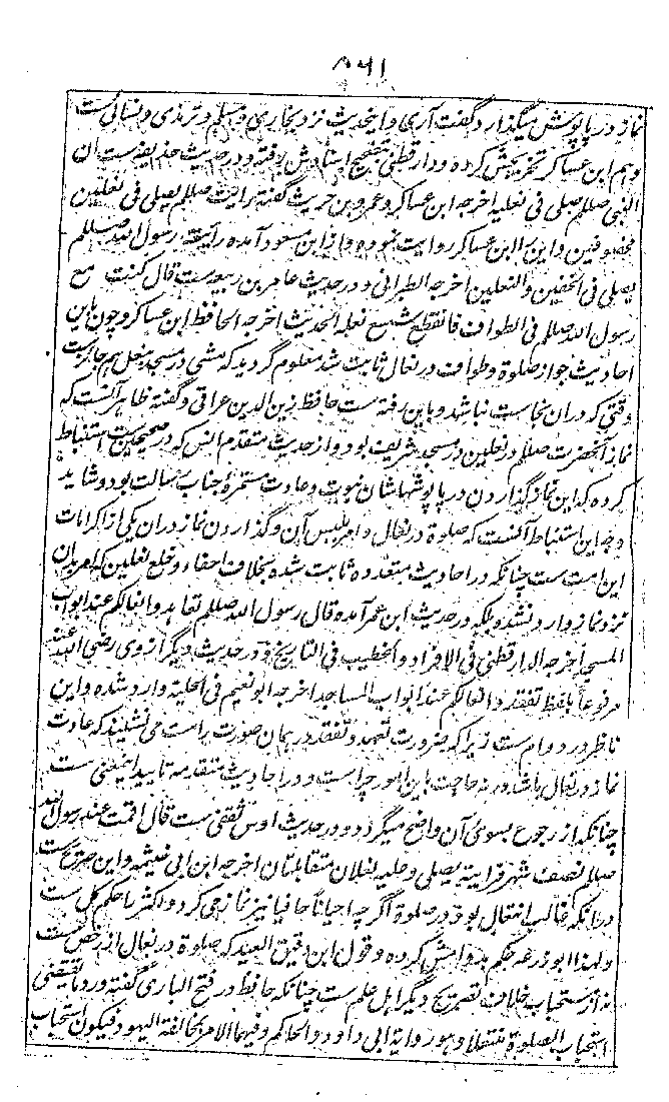 ۵۶۱
نماز در پاپوش میگذارد گفت آری و این حدیث نزد بخاری و مسلم و ترمذی و نسائی ست
و هم ابن عساکر تخریجش کرده و دارقطنی بتصحیح اسنادش رفته و در حدیث حذیفه ست ان
النبی صللم صلی فی نعلیه اخرجه ابن عساکر و عمرو بن حریث گفته رایت صللم یصلی فی نعلین
مخصوفین و این را ابن عساکر روایت نموده و از ابن مسعود آمده رایته رسول الله صللم
یصلی فی الخفین والنعلین اخرجه الطبرانی و در حدیث عامر بن ربیعه ست قال کنت مع
رسول الله صللم فی الطواف فانقطع شسع نعله الحدیث اخرجه الحافظ ابن عساکر و چون باین
احادیث جواز صلوة و طواف در نعال ثابت شد معلوم گردید که مشی در مسجد بنعل هم جائز ست
وقتی که دران نجاست نباشد و باین رفته ست حافظ زین الدین عراقی و گفته ظاهر آنست که
نماز آنحضرت صللم در نعلین در مسجد شریف بود و از حدیث متقدم انس که در صحیحین ست استنباط
کرده که این نماز گذاردن در پاپوشها شان نبوت و عادت مستمره جناب رسالت بود و شاید
وجه این استنباط آنست که صلوة در نعال و امر بلبس آن و گذاردن نماز دران یکی از اکرامات
این امت ست چنانکه در احادیث متعدده ثابت شده بخلاف احفاء و خلع نعلین که امر بدان
نزد نماز وارد نشده بلکه در حدیث ابن عمر آمده قال رسول الله صللم تعاهدوا نعالکم عند ابواب
المسجد اخرجه الدارقطنی فی الافراد والخطیب فی التاریخ و در حدیث دیگر از وی رضی الله عنه
مرفوعا بلفظ تفقدوا نعالکم عند ابواب المساجد اخرجه ابو نعیم فی الحلیة وارد شده و این
ناظر در دوام ست زیرا که ضرورت تعهد و تفقد در همان صورت راست می نشیند که عادت
نماز در نعال باشد ورنه حاجت باین امور چراست و در احادیث متقدمه تایید این معنی ست
چنانکه از رجوع بسوی آن واضح میگردد و در حدیث اوس ثقفی ست قال اقمت عند رسول الله
صللم نصف شهر فرایته یصلی و علیه نعلان متقابلتان اخرجه ابن ابی خیثمه و این صریح ست
درانکه غالب انتعال بود در صلوة اگرچه احیانا حافیا نیز نماز می کرد و اکثر را حکم کل ست
و لهذا ابو زرعه حکم بدوامش کرده و قول ابن دقیق العید که صلوة در نعال از رخص ست
نه از مستحباب خلاف تصریح دیگر اهل علم ست چنانکه حافظ در فتح الباری گفته ورد ما یقتضی
استحباب الصلوة منتعلا وهو روایة ابی داود والحاکم و فیهما الامر بخالفة الیهود فیکون استحباب